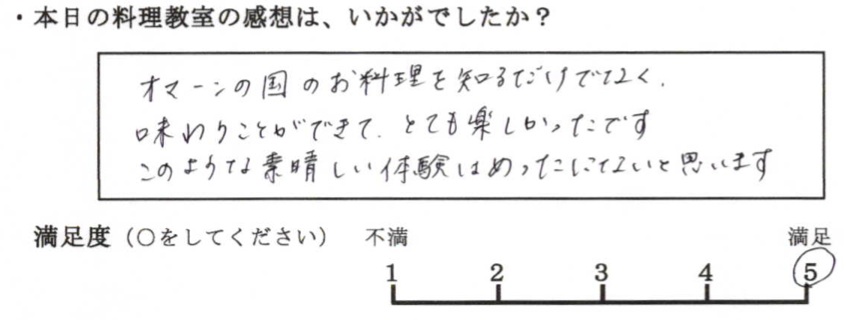 ・本日の料理教室の感想は、いかがでしたか？
オマーンの国のお料理を知るだけでなく、
味わうことができて、とても楽しかったです
このような素晴しい体験はめったにないと思います
満足度（○をしてください） 不満 満足
1 2 3 4 5